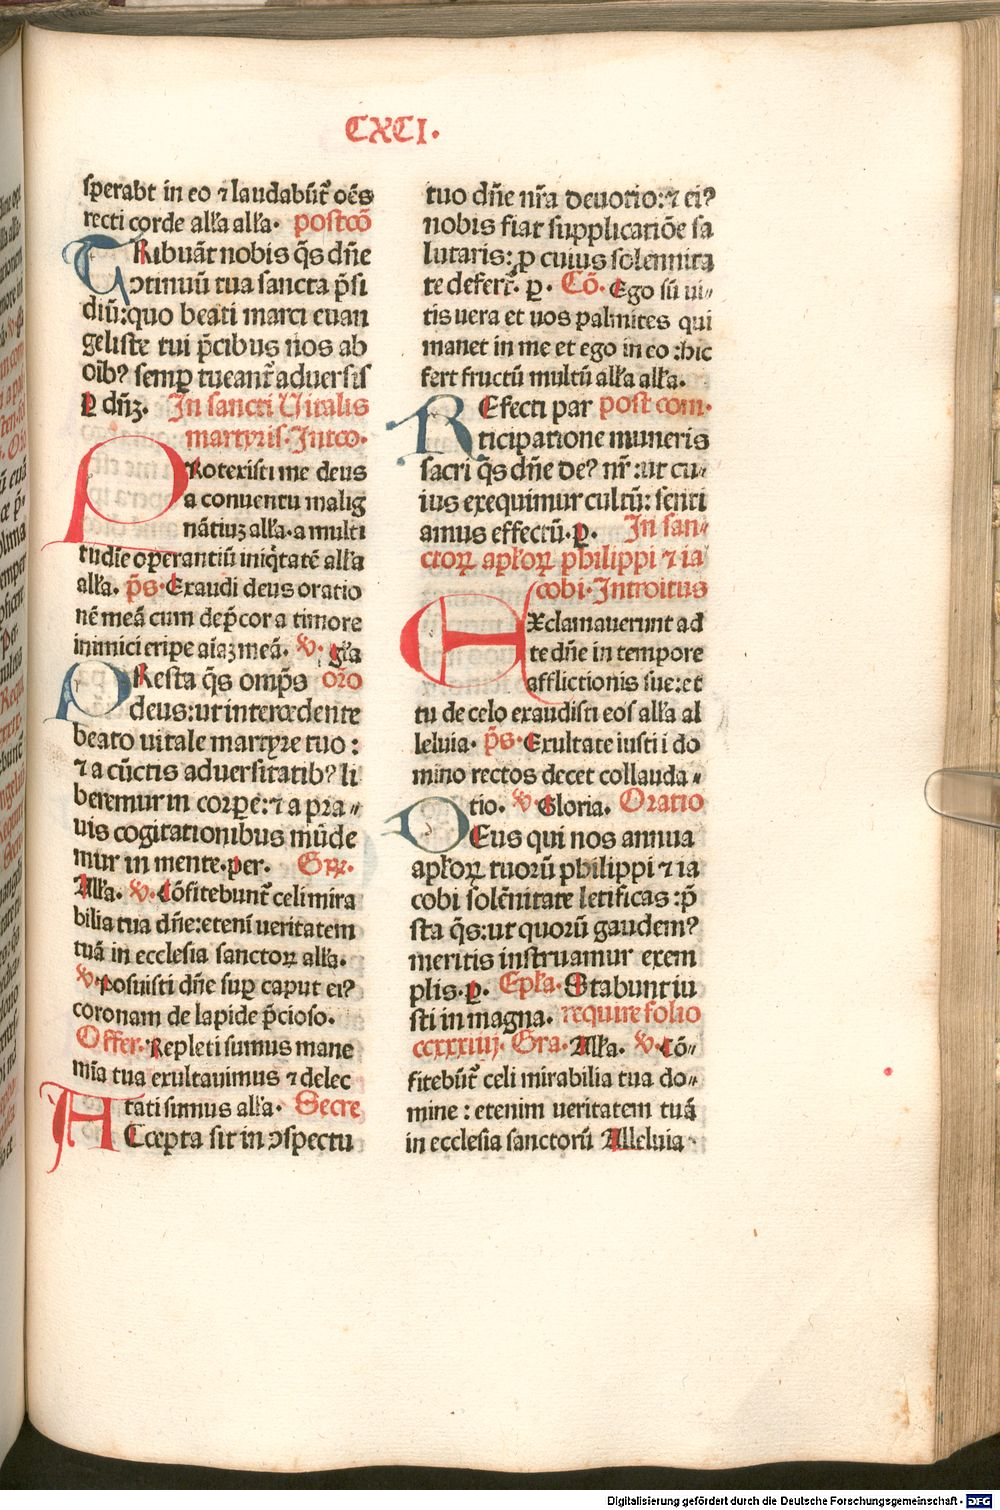 CXCI.
sperabt in eo ⁊ laudabūt᷑ oēs
recti corde alła alła. postcō
TRibuāt nobis q̄s dn̄e
ↄtinuū tua sancta p̄si
diū:quo beati marci euan
geliste tui p̄cibus nos ab
oīb? semꝑ tueant᷑ aduersis
P dn̄ꝫ. In sancti Uitalis
martyris.Intro.
PRotexisti me deus
a conuentu malig
nātiuꝫ alła.a multi
tudīe operantiū iniq̄tatē alła
alła. p̄s.Exaudi deus oratio
nē meā cum dep̄cor a timore
inimici eripe aīaꝫ meā. v. gła
PResta q̄s omp̄s oro
deus:ut intercedente
beato uitale martyre tuo:
⁊ a cūctis aduersitatib? li
beremur in corpe:⁊ a pra〃
uis cogitationibus mūde
mur in mente.per. Gꝝ.
Alła. v.Cōfitebunt᷑ celi mira
bilia tua dn̄e:etenī ueritatem
tuā in ecclesia sanctoꝝ alła.
v.posuisti dn̄e suꝑ caput ei?
coronam de lapide p̄cioso.
Offer.Repleti sumus mane
mīa tua exultauimus ⁊ delec
tati sumus alła. Secre
ACcepta sit in ↄspectu
tuo dn̄e nr̄a deuotio:⁊ ei?
nobis fiat supplicatiōe sa
lutaris:ꝓ cuius solennita
te defert᷑. ꝑ. Cō. Ego sū ui〃
tis uera et uos palmites qui
manet in me et ego in eo:hic
fert fructū multū alła alła.
REfecti par post com.
ticipatione muneris
sacri q̄s dn̄e de? nr̄:ut cu〃
ius exequimur cultū:senti
amus effectū.ꝑ. In san〃
ctoꝝ apłoꝝ philippi ⁊ ia
cobi.Introitus
EXclamauerunt ad
te dn̄e in tempore
afflictionis sue:et
tu de celo exaudisti eos alła al
leluia. p̄s.Exultate iusti i do
mino rectos decet collauda〃
tio. v Gloria. Oratio
DEus qui nos annua
apłoꝝ tuorū philippi ⁊ ia
cobi solēnitate letificas:p̄
sta q̄s:ut quorū gaudem?
meritis instruamur exem
plis.ꝑ. Epła.Stabunt iu
sti in magna. require folio
ccxxxiiij. Gra.Alła. v.Cō〃
fitebūt᷑ celi mirabilia tua do〃
mine:etenim ueritatem tuā
in ecclesia sanctorū Alleluia.
Digitalisierung gefördert durch die Deutsche Forschungsgemeinschaft - DFG